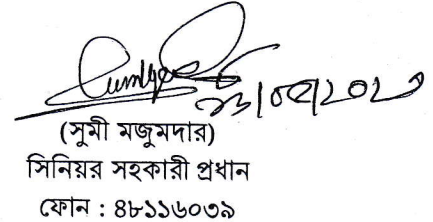 (সুমী মজুমদার)
সিনিয়র সহকারী প্রধান
ফোন : ৪৮১১৬০৩৯